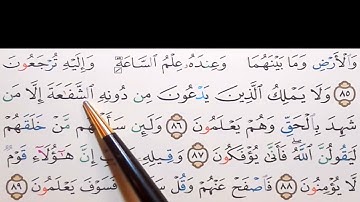 وَالْأَرْضِ وَمَا بَيْنَهُمَا وَعِندَهُ عِلْمُ السَّاعَةِ وَإِلَيْهِ تُرْجَعُونَ
٨٥ وَلَا يَمْلِكُ الَّذِينَ يَدْعُونَ مِن دُونِهِ الشَّفَاعَةَ إِلَّا مَن
شَهِدَ بِالْحَقِّ وَهُمْ يَعْلَمُونَ ٨٦ وَلَئِن سَأَلْتَهُم مَّنْ خَلَقَهُمْ
لَيَقُولُنَّ اللَّهُ فَأَنَّى يُؤْفَكُونَ ٨٧ وَقِيلِهِ يَا رَبِّ إِنَّ هَؤُلَاءِ قَوْمٌ
لَّا يُؤْمِنُونَ ٨٨ فَاصْفَحْ عَنْهُمْ وَقُلْ سَلَامٌ فَسَوْفَ يَعْلَمُونَ ٨٩